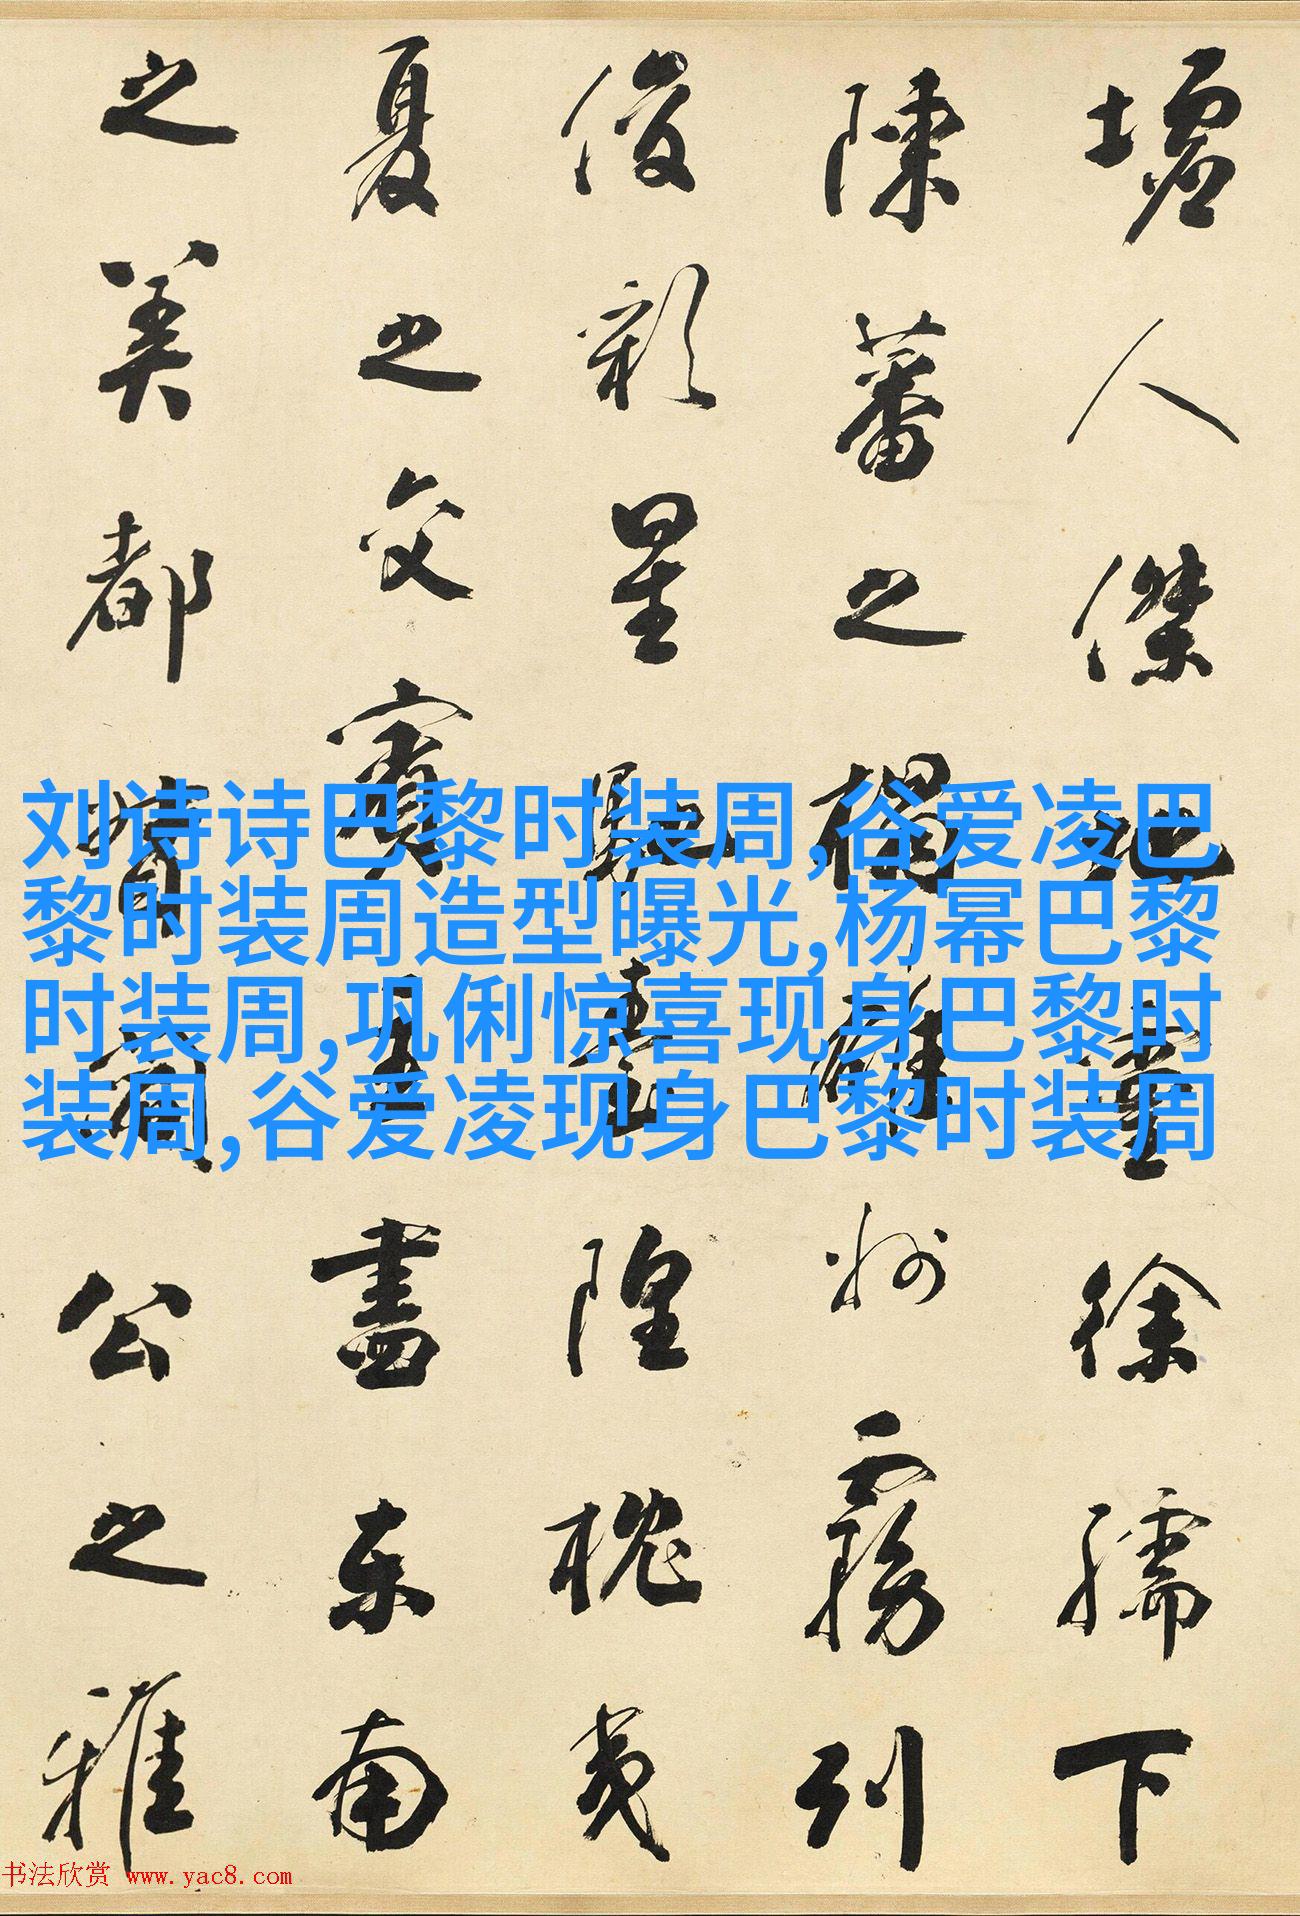 墟人傑地靈徐孺下
陳蕃之榻雄州霧列
俊彩星馳臺隍枕夷
夏之交賓主盡東南
之美都督閻公之雅
刘诗诗巴黎时装周,谷爱凌巴
黎时装周造型曝光,杨幂巴黎
时装周,巩俐惊喜现身巴黎时
装周,谷爱凌现身巴黎时装周
书法欣赏 www.yac8.com